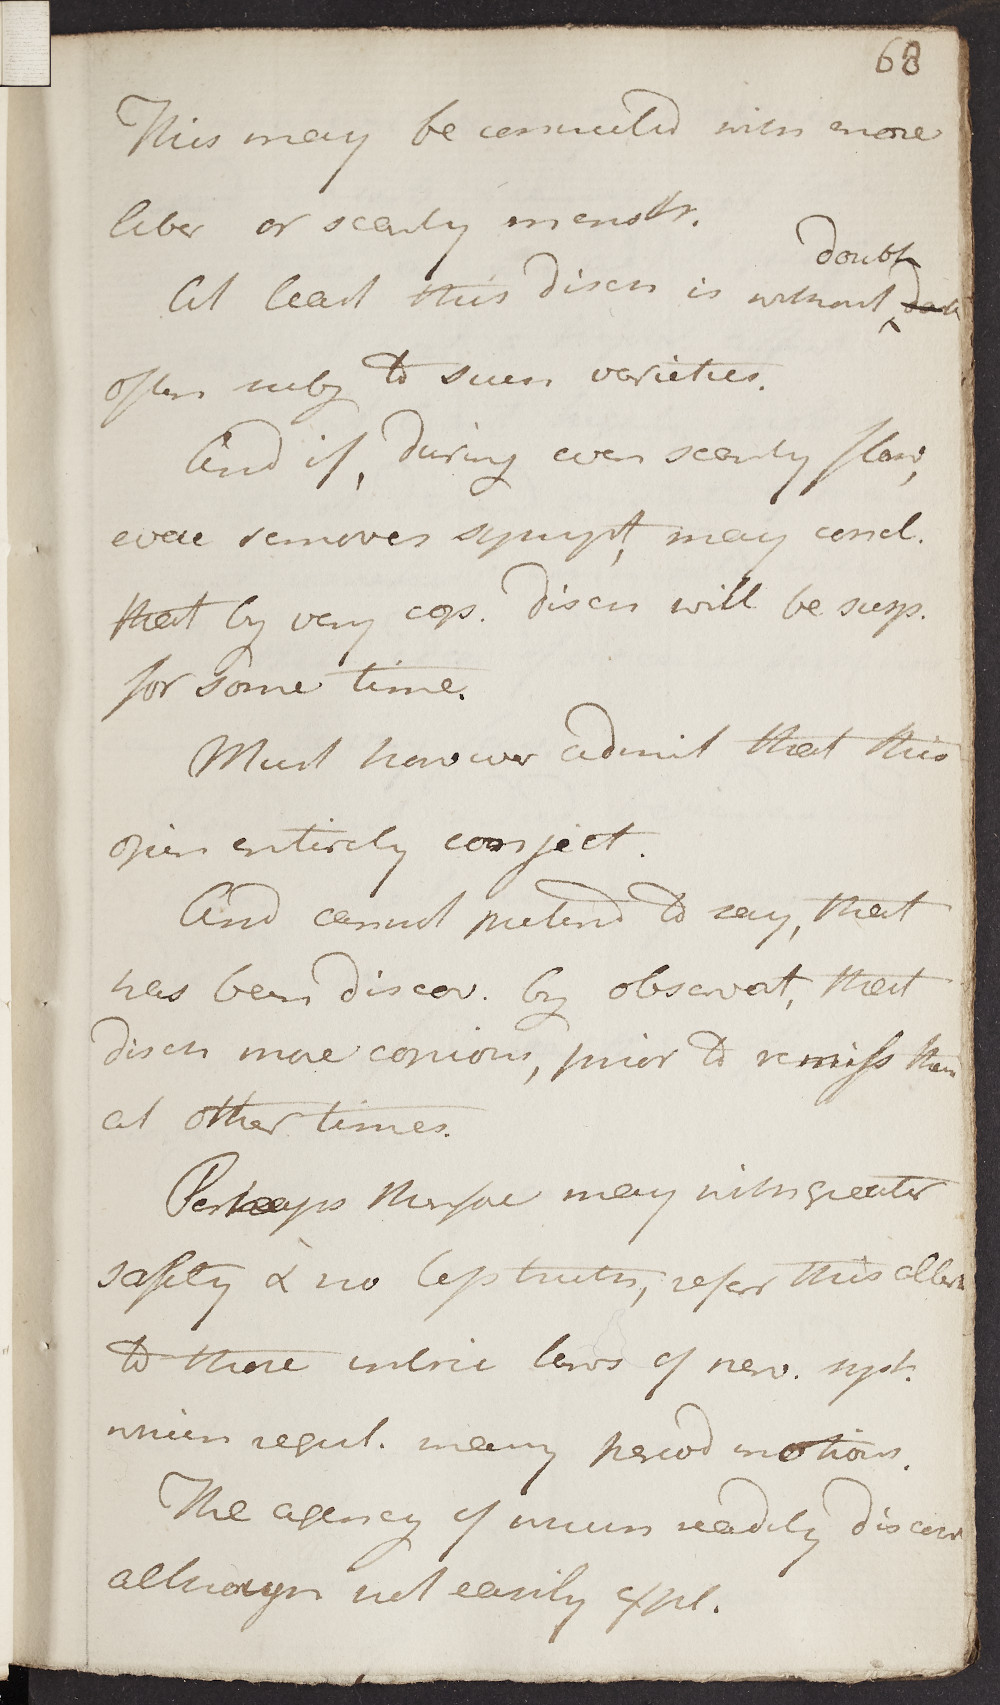 68
This may be connected with more
liber or scanty menstr.
At least this disch is without doubt
often subj to such varieties.
And if, during even scanty flow,
evac removes sympt, may concl.
that by very cop. disch will be susp.
for some time.
Must however admit that this
opin entirely conject.
And cannot pretend to say, that
has been discov. by observat, that
disch more copious, prior to remiss than
at other times.
Perhaps therfore may with greater
safety & no less truth, refer this alterat
to those intric laws of nerv. syst.
which regul. many period motions.
The agency of which readily discov
although not easily expl.